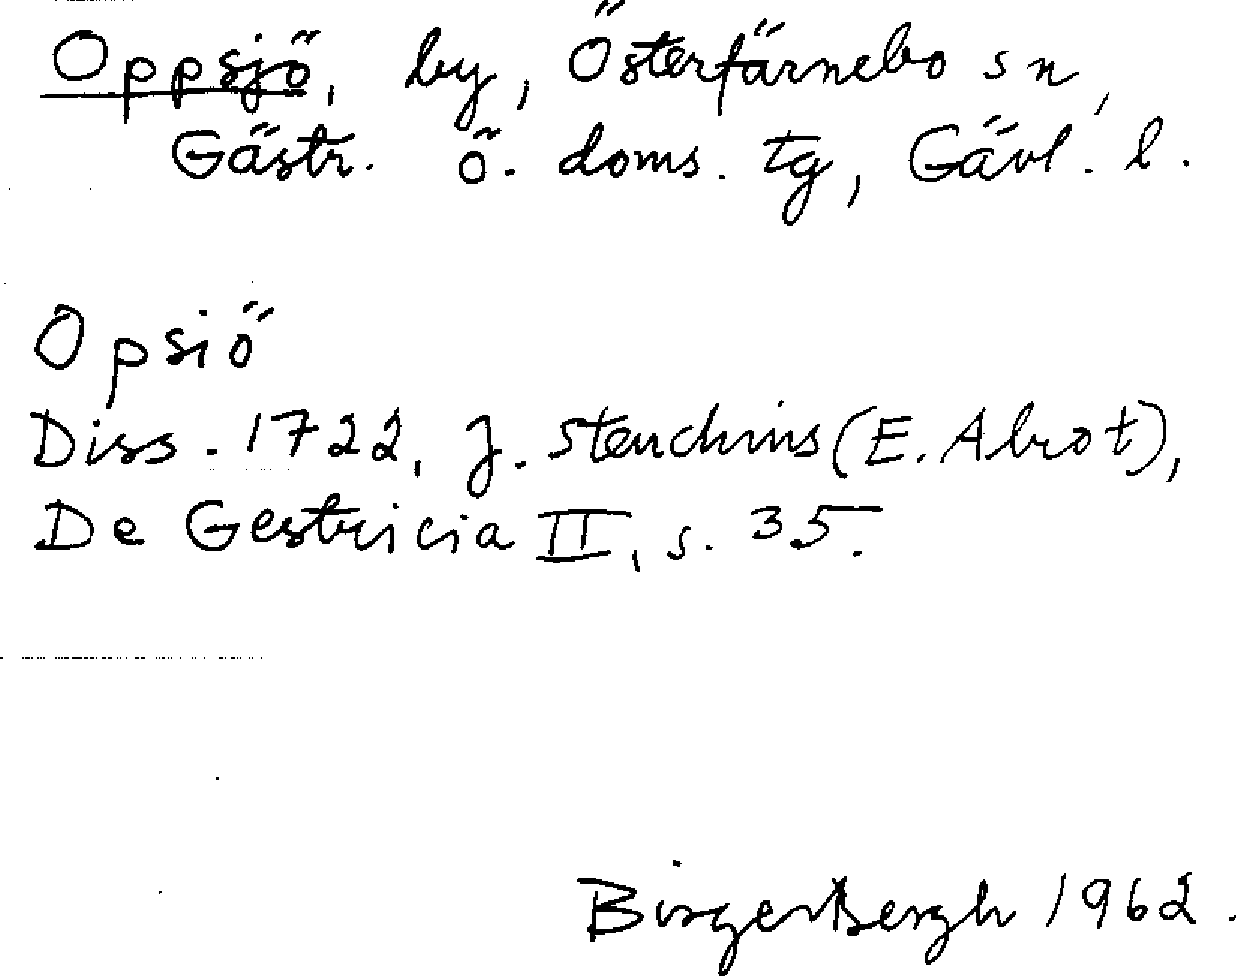 Oppsjö, by, Österfärnebo sn,
Gästr. ö. doms. tg, Gävl. l.
Opsiö
Diss. 1722, J. Steuchius (E. Abrot),
De Gestricia II, s. 35.
Birger Bergh 1962.